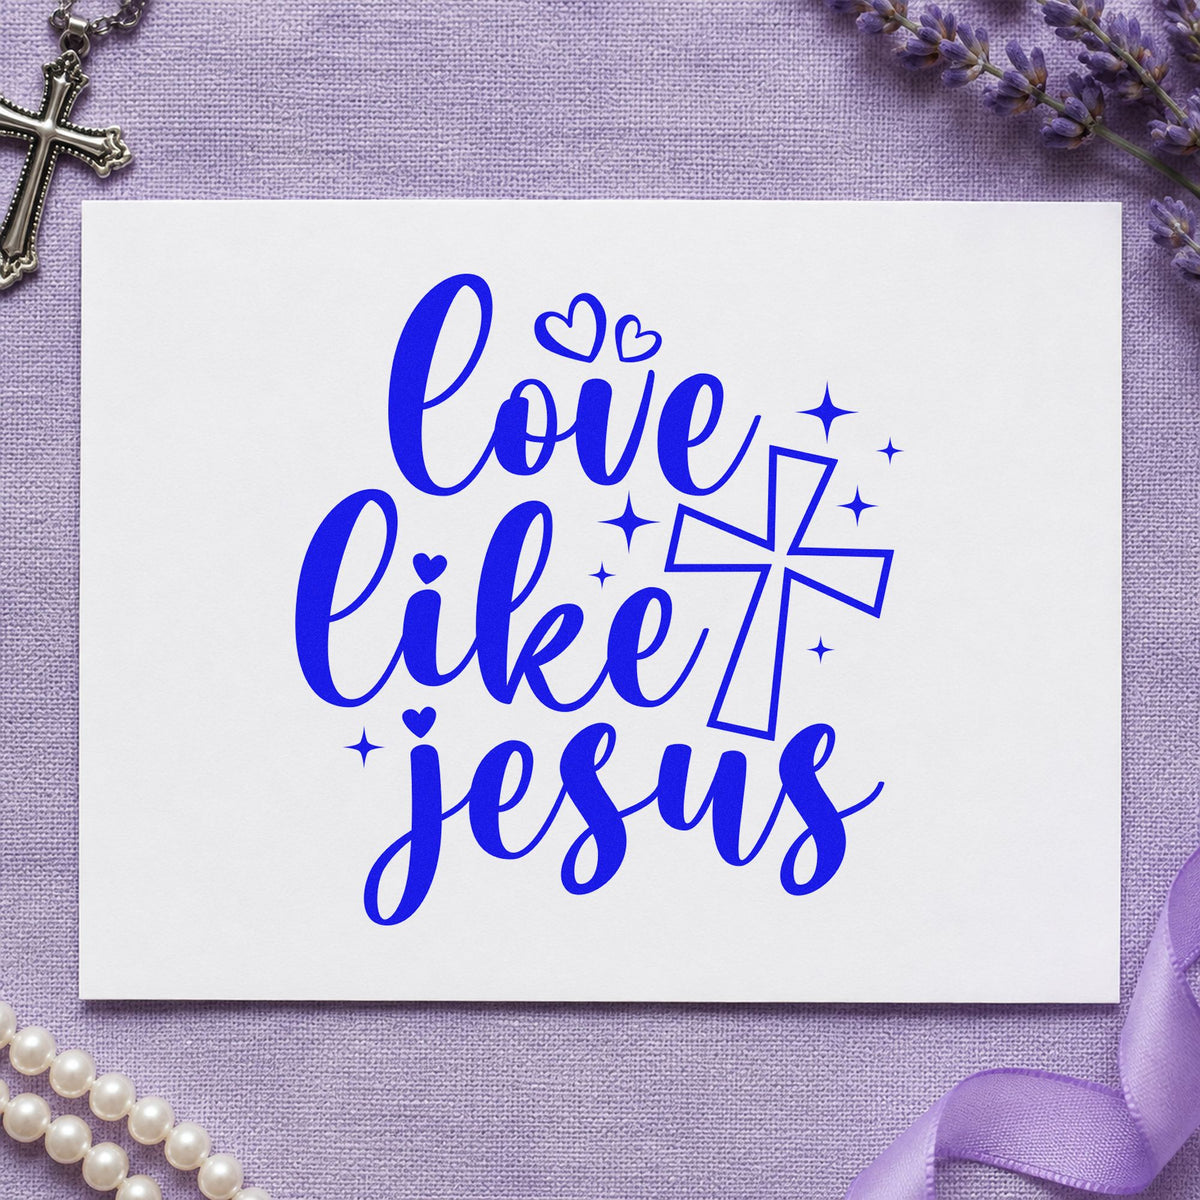 love
like
jesus